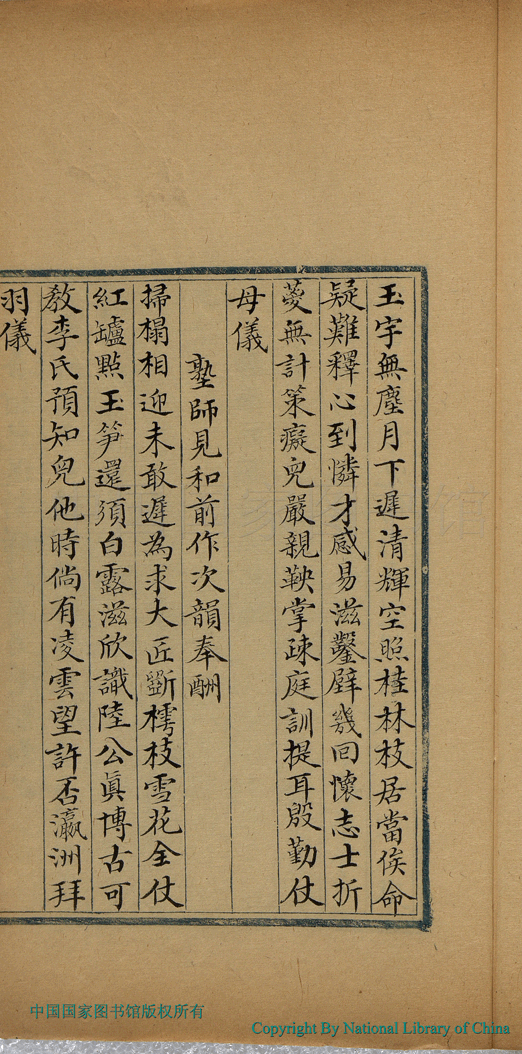 玉宇無塵月下遲清輝空照桂林枝居當俟命
疑難釋心到憐才感易滋鑿壁幾回懷志士折
蔆無計策癡兒嚴親鞅掌疎庭訓提耳殷勤仗
母儀
塾師見和前作次韻奉酬
掃榻相迎未敢遲為求大匠斲樗枝雪花全仗
紅罏點玉笋還須白露滋欣識陸公眞博古可
教李氏預知兒他時倘有凌雲望許否瀛洲拜
羽儀
中国国家图书馆版权所有
Copyright By National Library of China